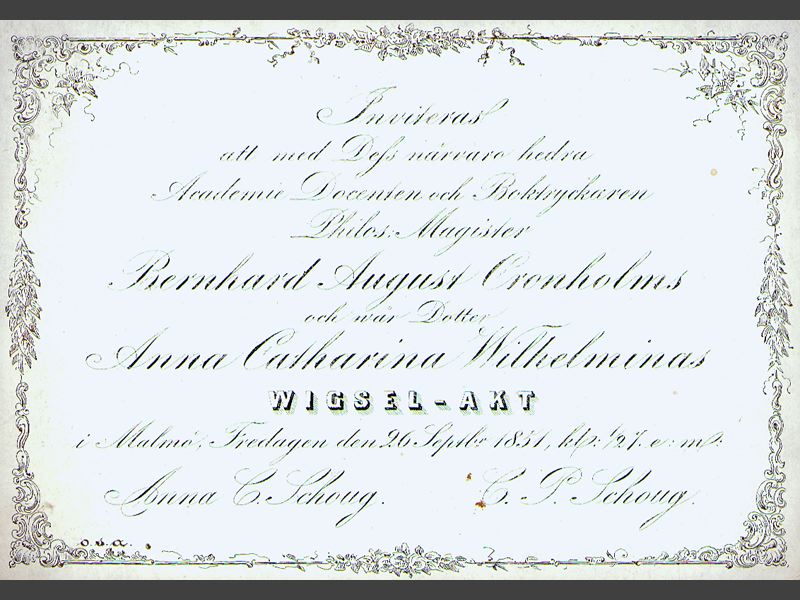 Inviteras
att med Dess närvaro hedra
Academie Docenten och Boktryckaren
Philos: Magister
Bernhard August Cronholms
och wår Dotter
Anna Catharina Wilhelminas
WIGSEL-AKT
i Malmö, Fredagen den 26 Septbr 1851, kl: 1/2 7. e: m:
Anna C. Schoug. C. P. Schoug.
o.s.a.